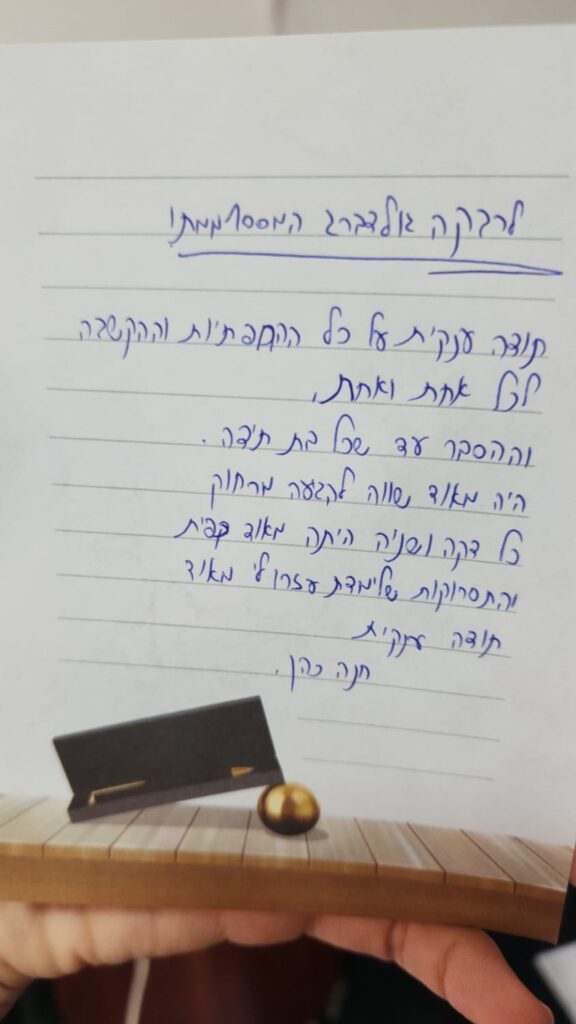 לרבקה גולדברג המסססממת!
תודה ענקית על כל ההקפתיות והקשבה
לכל אחת ואחת,
וההסבר עד שכל בת תידה.
היה מאוד שווה להגעה מרחוק
כל דקה ושניה היתה מאוד כפית
והתסרוקות שלימדת עזרו לי מאוד
תודה ענקית
חנה כהן.